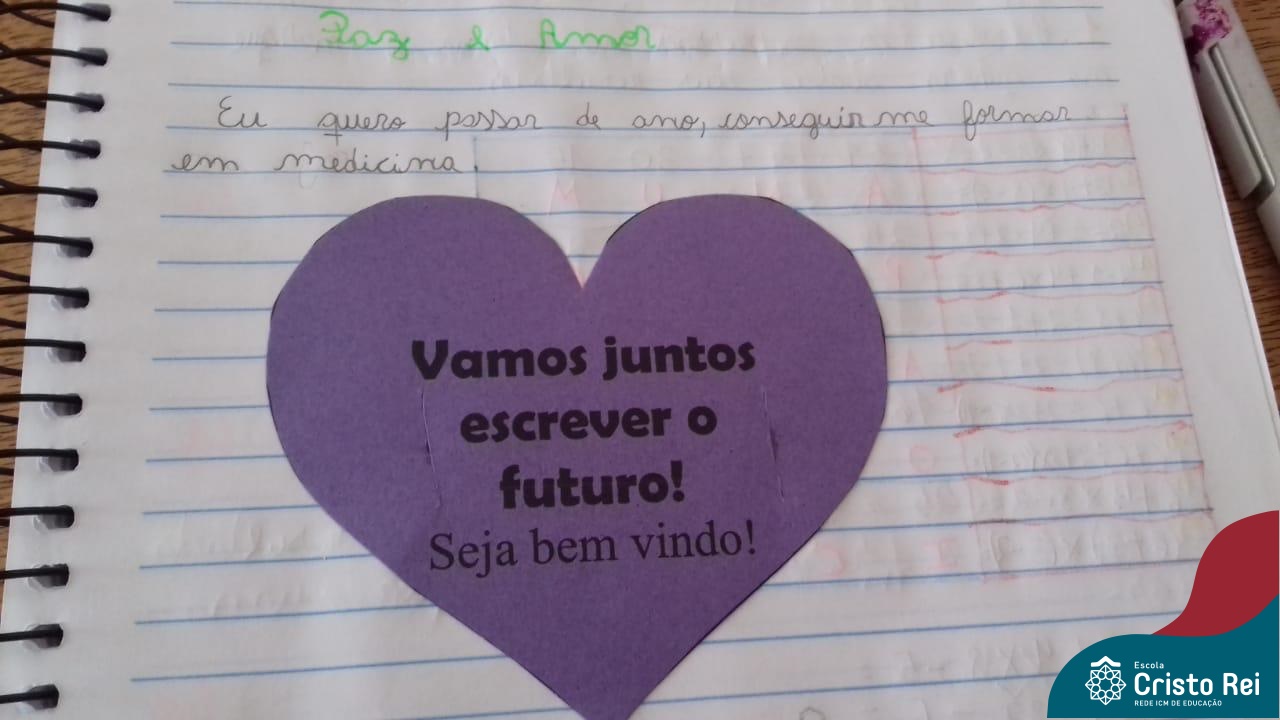 Paz & Amor
Eu quero passar de ano, conseguir me formar
em medicina.
Vamos juntos
escrever o
futuro!
Seja bem vindo!
Escola
Cristo Rei
REDE ICM DE EDUCAÇÃO